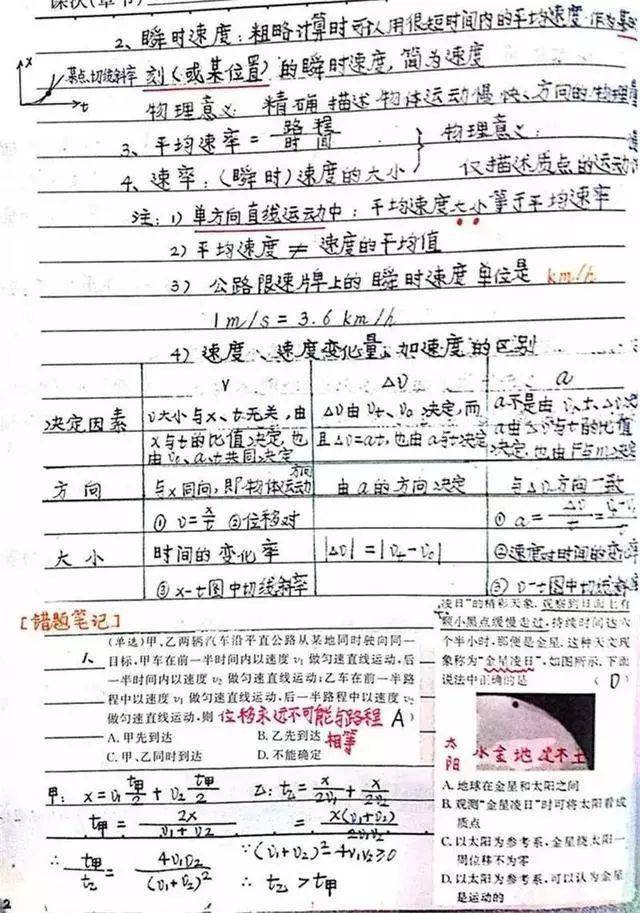 2、瞬时速度：粗略计算时可认用很短时间内的平均速度作为某
x
某点切线斜率
t
刻（或某位置）的瞬时速度，简为速度
物理意义：精确描述物体运动慢快、方向的物理
3、平均速率 = 路程/时间
物理意义：
4、速率：（瞬时）速度的大小
仅描述质点的运动
注：1）单方向直线运动中：平均速度大小等于平均速率
2）平均速度 ≠ 速度的平均值
3）公路限速牌上的瞬时速度单位是 km/h
1m/s = 3.6 km/h
4）速度、速度变化量、加速度的区别
v △v a
决定因素
v大小与x、t无关，由
x与t的比值决定，也
由v₀、a、t共同决定
△v由vₜ、v₀决定，而
且△v=at，也由a与t决定
a不是由v、t、△v决定
a由△v与t的比值
决定，也由F与m决定
方向
与x同向，即物体运动
方向
由a的方向决定
与△v方向一致
大小
① v=x/t ②位移对
时间的变化率
③x-t图中切线斜率
|△v|=|vₜ-v₀|
① a=△v/t=
②速度对时间的变化率
③v-t图中切线斜率
[错题笔记]
1.
(单选)甲、乙两辆汽车沿平直公路从某地同时驶向同一
目标，甲车在前一半时间内以速度 v₁ 做匀速直线运动，后
一半时间内以速度 v₂ 做匀速直线运动；乙车在前一半路
程中以速度 v₁ 做匀速直线运动，后一半路程中以速度 v₂
做匀速直线运动，则 （A）
位移永远不可能与路程
相等
A.甲先到达 B.乙先到达
C.甲、乙同时到达 D.不能确定
甲：x=v₁ t甲/2 + v₂ t甲/2
t甲 = 2x/(v₁+v₂)
乙：t乙 = x/2v₁ + x/2v₂
= x(v₁+v₂)/2v₁v₂
∴ t甲/t乙 = 4v₁v₂/(v₁+v₂)²
∵(v₁+v₂)²-4v₁v₂≥0
∴ t乙 > t甲
凌日”的精彩天象，观察到日面上有
颗小黑点缓慢走过，持续时间达六
个半小时，那便是金星，这种天文现
象称为“金星凌日”，如图所示，下面
说法中正确的是 （D）
太阳 水金地火木土
A.地球在金星和太阳之间
B.观测“金星凌日”时可将太阳看成
质点
C.以太阳为参考系，金星绕太阳一
周位移不为零
D.以太阳为参考系，可以认为金星
是运动的
2